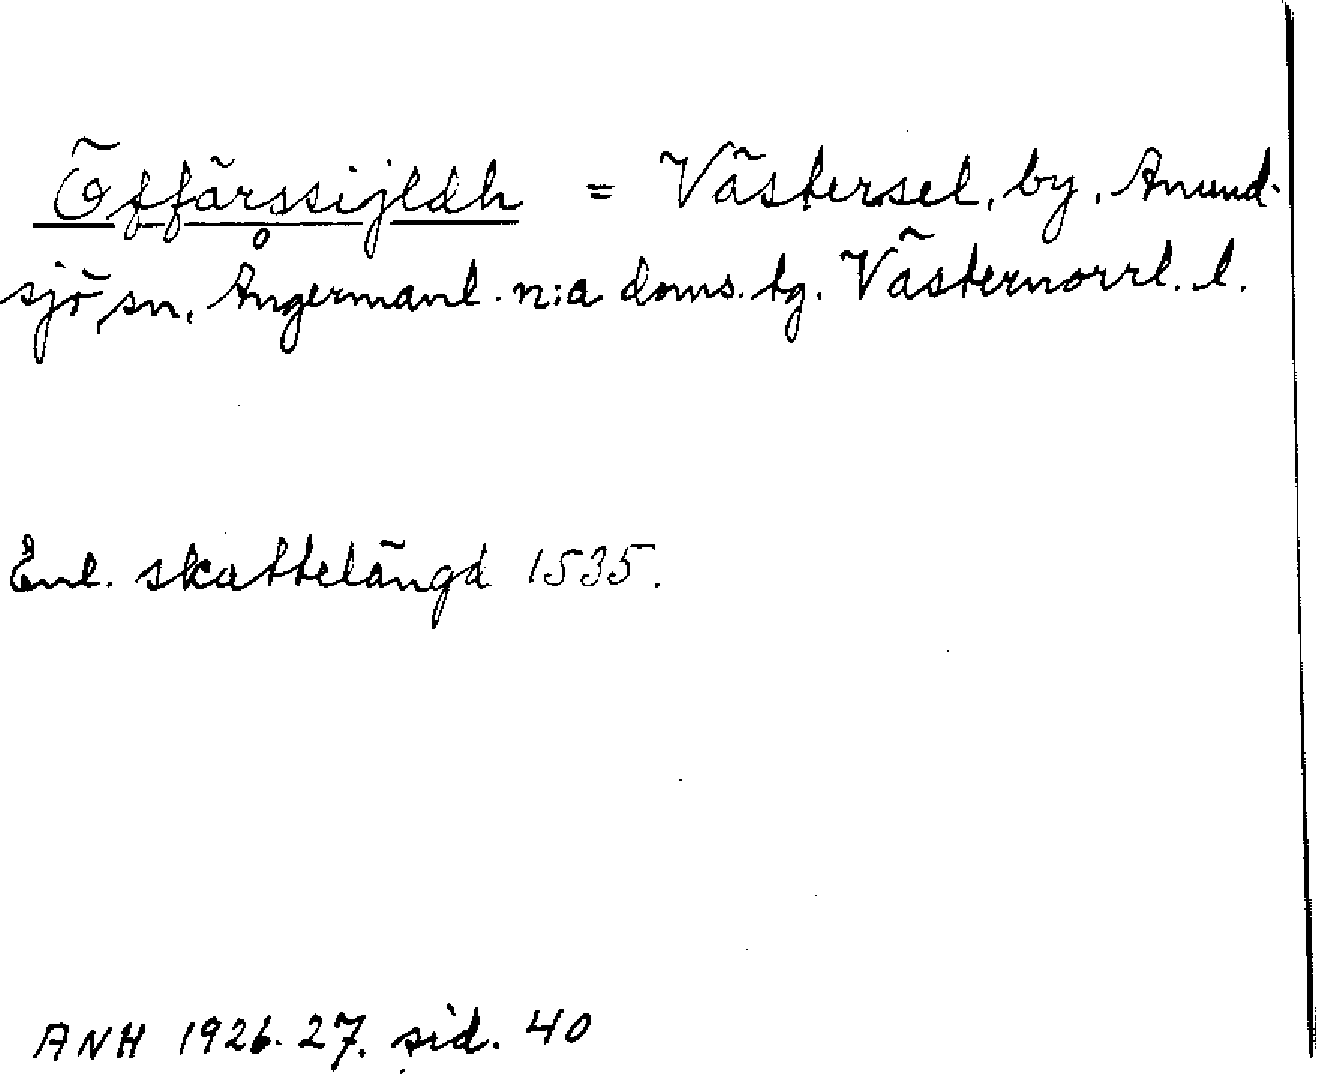 Öffärssijeldh = Västersel, by, Anund-
sjö sn, Ångermanl. n:a doms. tg. Västernorrl. l.
Enl. skattelängd 1535.
ANH 1926-27. sid. 40